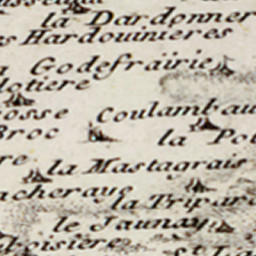 la Dardonner
Hardouinieres
Godefrairie
lotiere
osse Coulambau
Broc la Pol
re la Mastagrais
acheraye
la Tripar
le Jaunay
boisière